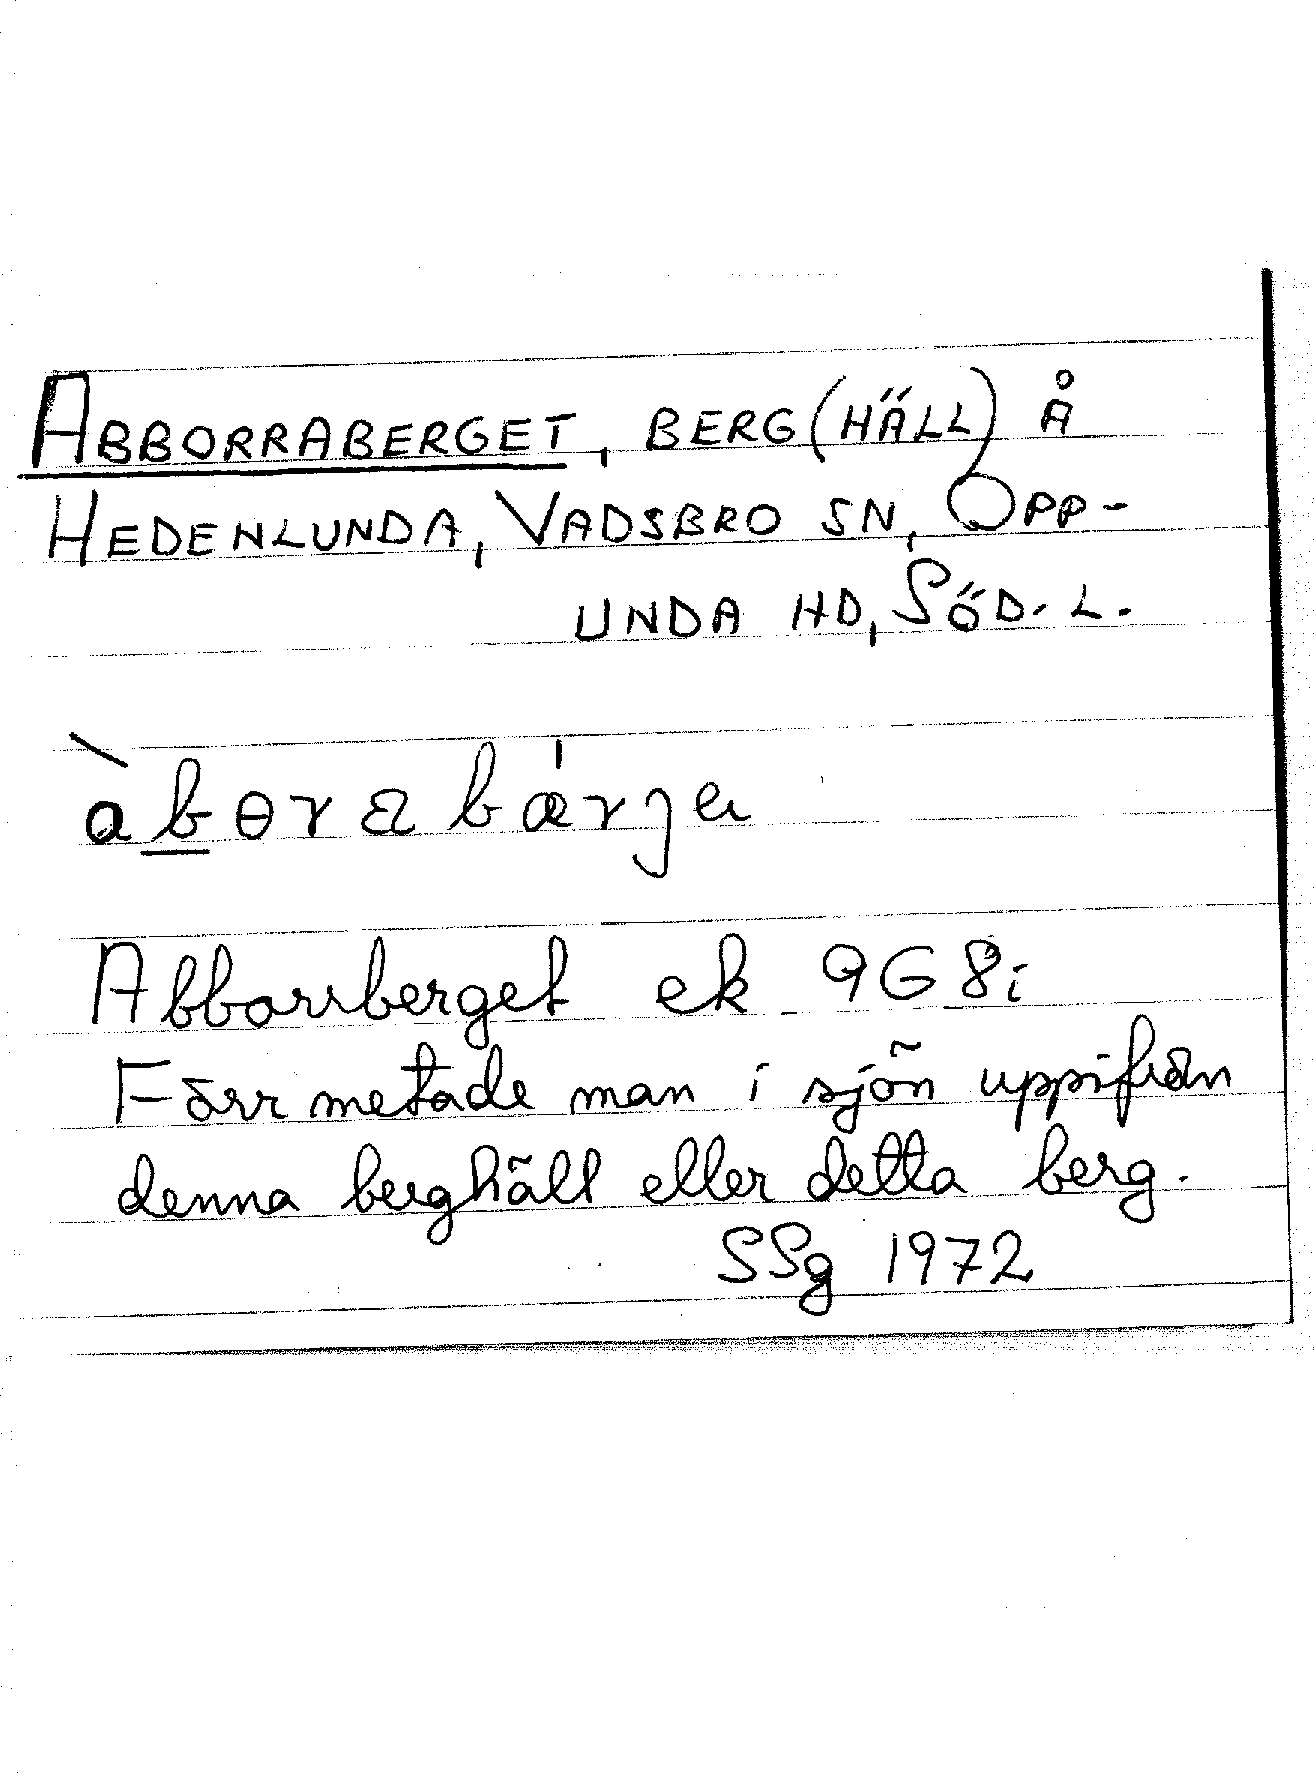 ABBORRABERGET, BERG (HÄLL) Å
HEDENLUNDA, VADSBRO SN, OPP-
UNDA HD, SÖD. L.
àbɵrabærjɑ
Abborrberget ek 9G8i
Förr metade man i sjön uppifrån
denna berghäll eller detta berg.
SSg 1972